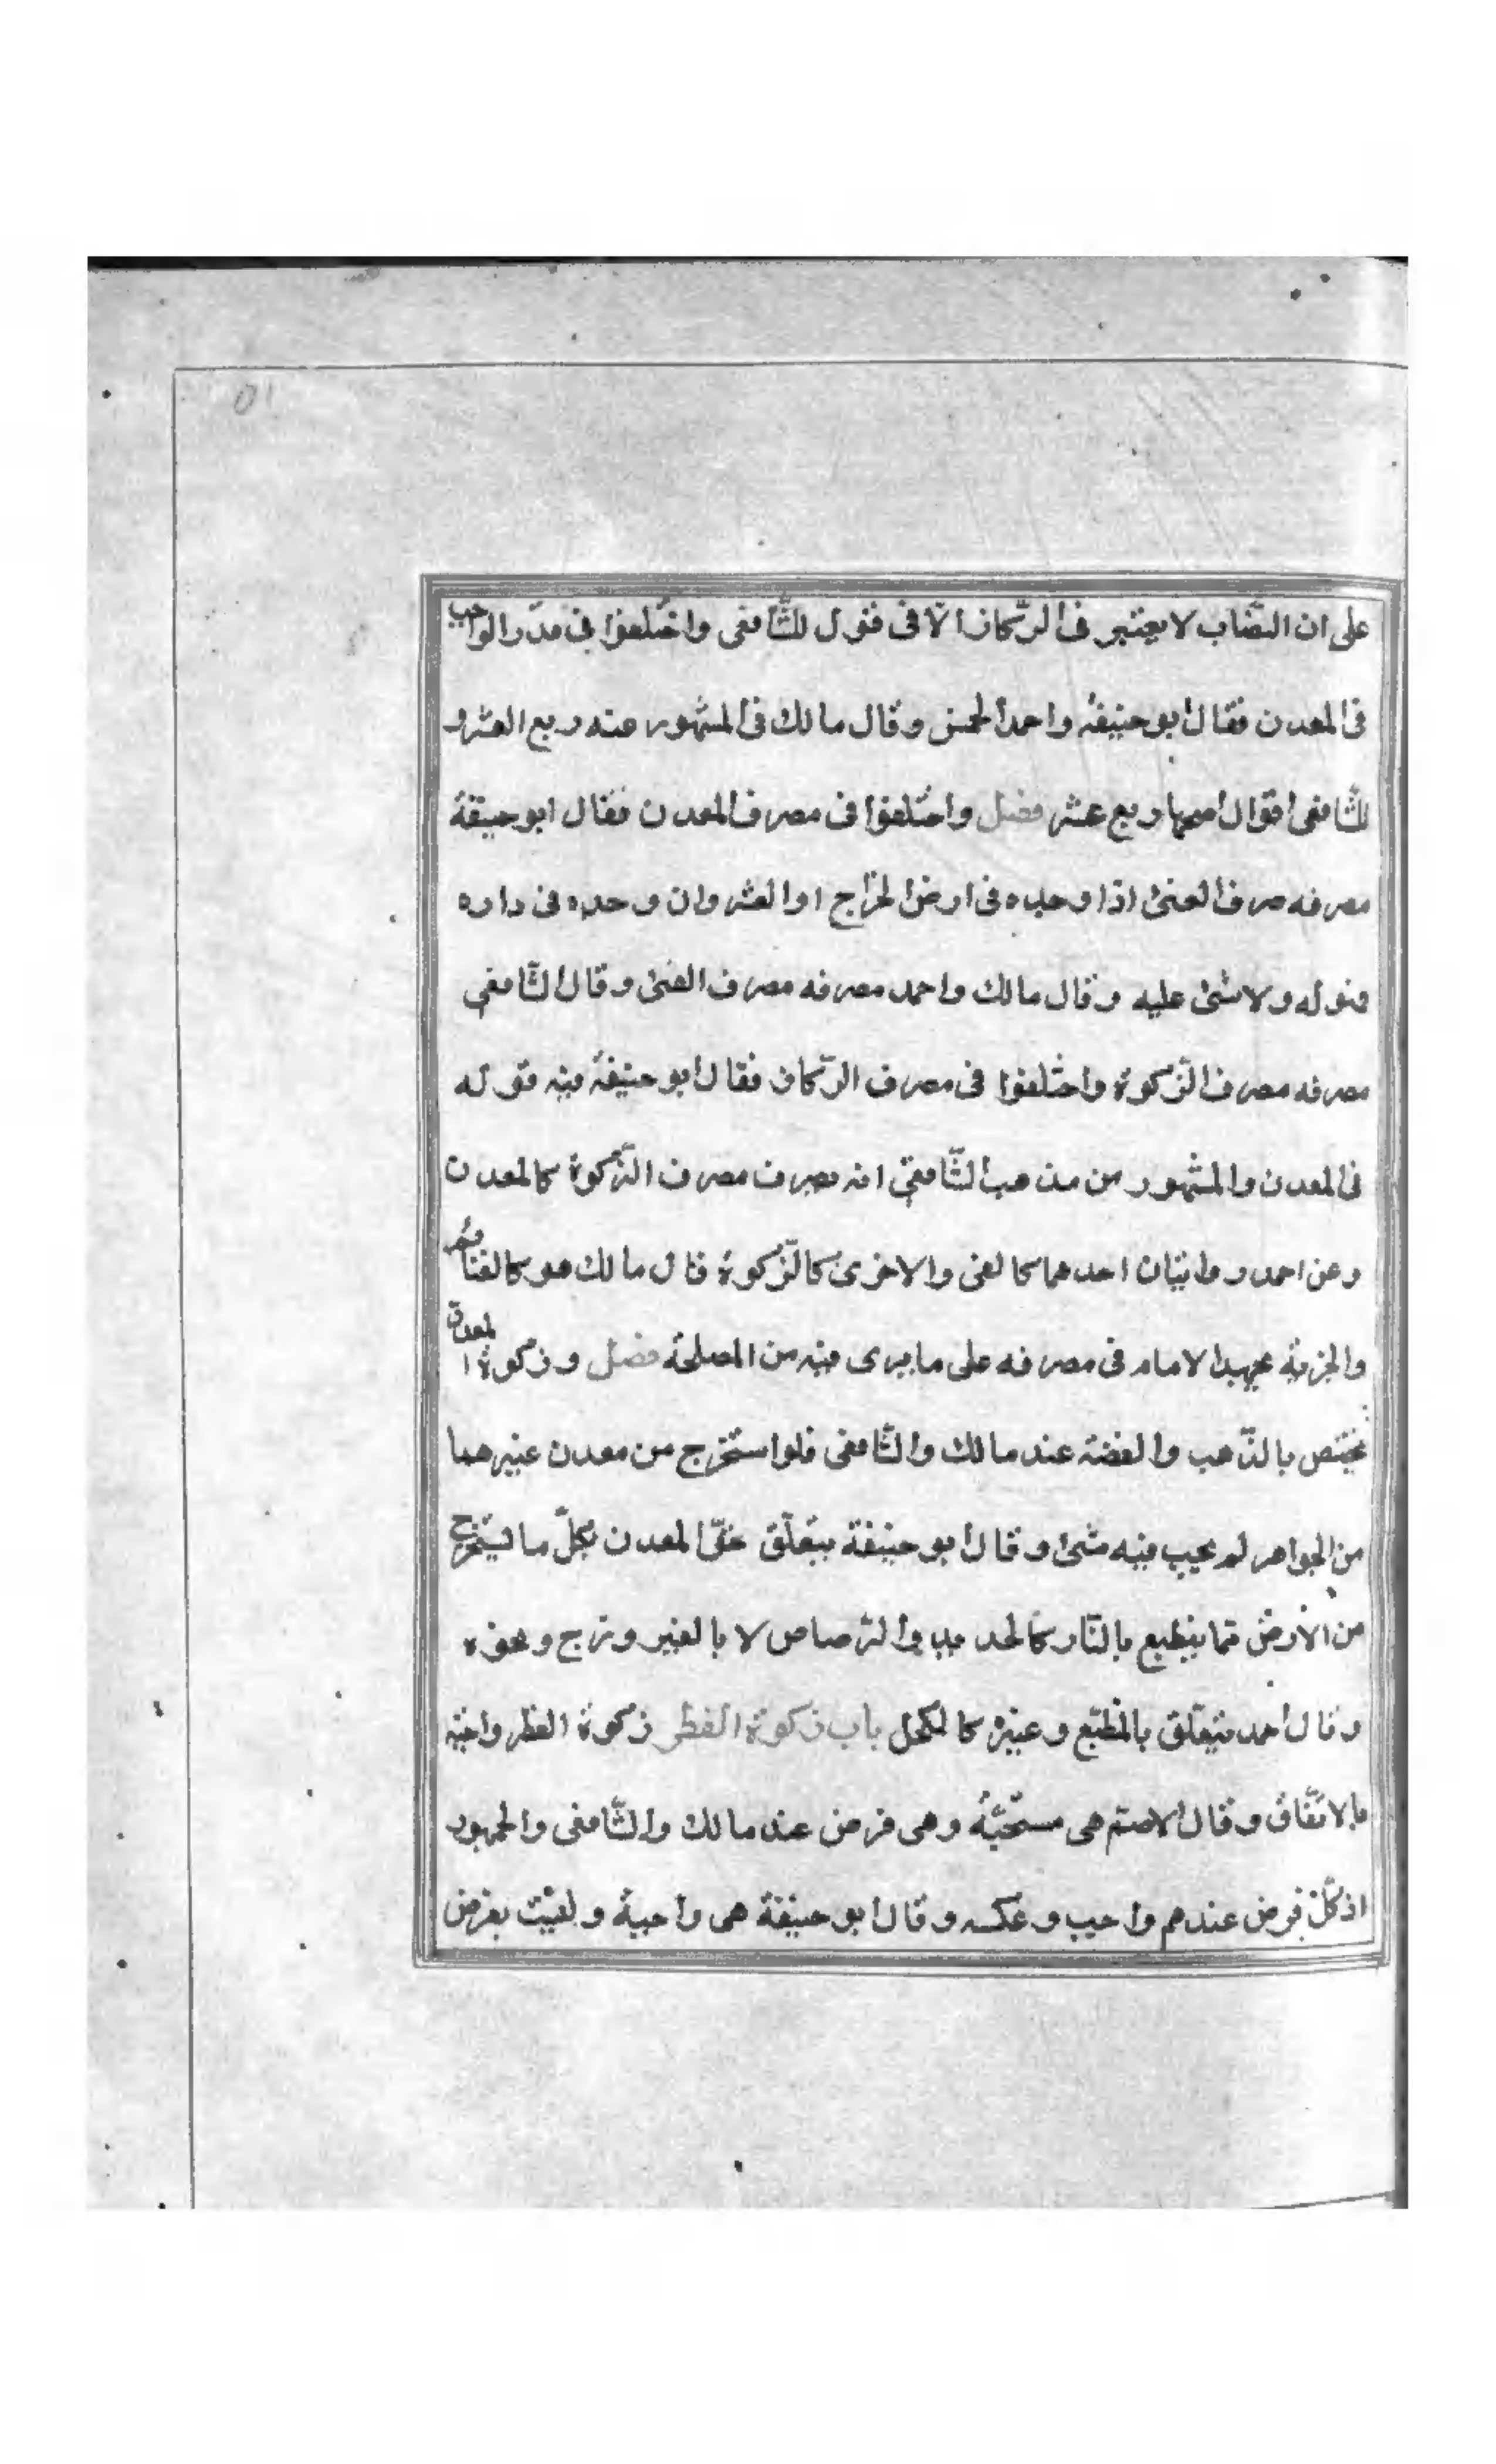 ٥١
على ان النصاب لا يعتبر فى الركاز الّا فى قول للشّافعى واختلفوا فى قدر الواجب
فى المعدن فقال ابو حنيفة واحمد الخمس وقال مالك فى المشهور عنه ربع العشر و
للشّافعى اقوال اصحها ربع عشر فصل واختلفوا فى مصرف المعدن فقال ابو حنيفة
مصرفه مصرف الفىٔ اذا وجده فى ارض الخراج او العشر وان وجده فى داره
فهو له ولا شىٔ عليه وقال مالك واحمد مصرفه مصرف الفىٔ وقال الشّافعي
مصرفه مصرف الزّكوة واختلفوا فى مصرف الرّكاز فقال ابو حنيفة فيه قوله
فى المعدن والمشهور من مذهب الشّافعي انه يصرف مصرف الزّكوة كالمعدن
وعن احمد روايتان احدهما كالفى والاخرى كالزّكوة قال مالك هو كالغنائم
والجزية يجتهد الامام فى مصرفه على ما يرى فيه من المصلحة فصل وزكوة المعدن
يختص بالذّهب والفضة عند مالك والشّافعى فلو استخرج من معدن غيرهما
من الجواهر لم يجب فيه شىٔ وقال ابو حنيفة يتعلّق حقّ المعدن بكلّ ما يستخرج
من الارض ممّا ينطبع بالنّار كالحديد والرّصاص لا بالغير وزج ونحوه
وقال احمد يتعلّق بالمنطبع وغيره كالكحل باب زكوة الفطر زكوة الفطر واجبة
بالاتّفاق وقال الاصمّ هى مستحبّة وهى فرض عند مالك والشّافعى والجمهور
اذ كلّ فرض عندهم واجب وعكسه وقال ابو حنيفة هى واجبة وليست بفرض